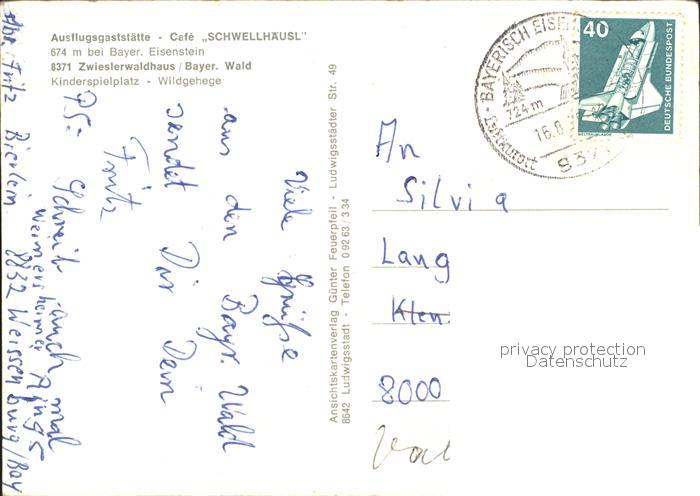 Ausflugsgaststätte - Café „SCHWELLHÄUSL"
674 m bei Bayer. Eisenstein
8371 Zwieslerwaldhaus / Bayer. Wald
Kinderspielplatz - Wildgehege
Viele Grüße
aus den Bayr. Wald
sendet Dir Dein
Fritz
PS: Schreib auch mal
Fritz Bierlein
Weimersheimer Ring 5
8832 Weissenburg/Bay
Ansichtskartenverlag Günter Feuerpfeil - Ludwigsstädter Str. 49
8642 Ludwigsstadt - Telefon 0 92 63 / 3 34
BAYERISCH EISEN
724 m
16.8.
837
40
DEUTSCHE BUNDESPOST
An
Silvia
Lang
Klen
8000
privacy protection
Datenschutz